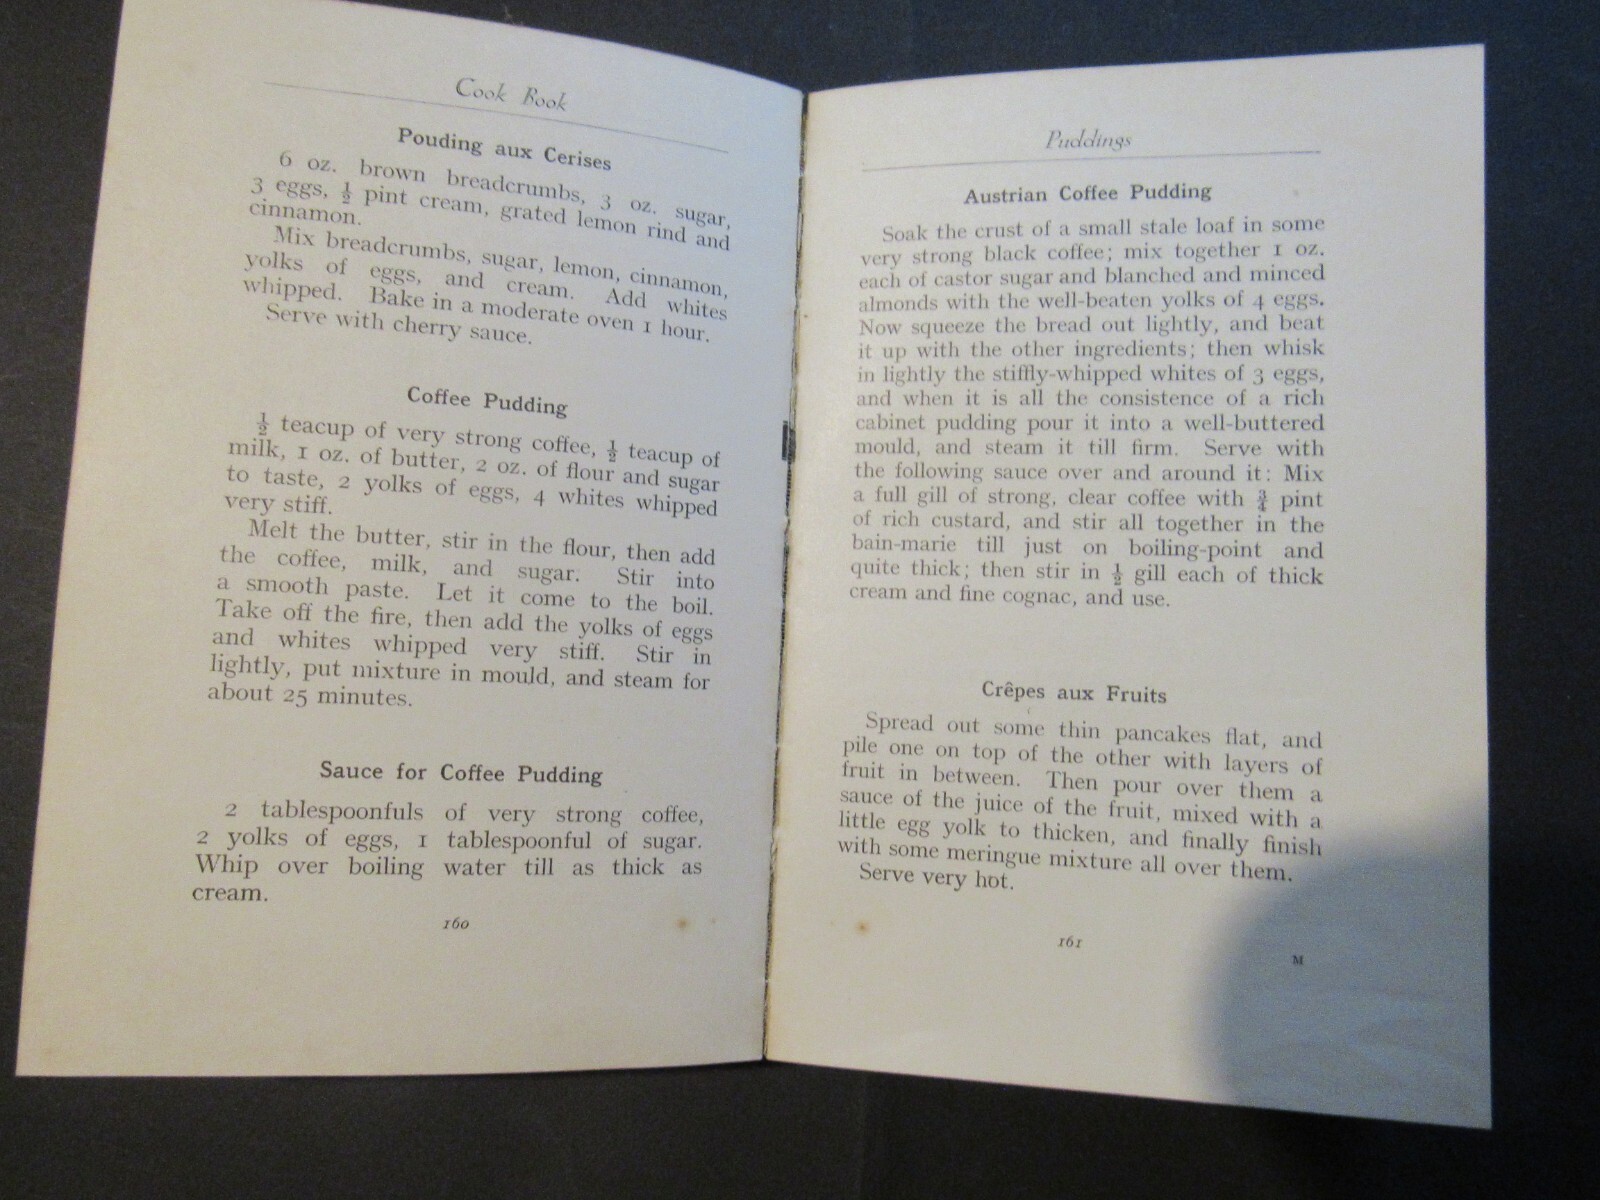 Cook Book
Pouding aux Cerises
6 oz. brown breadcrumbs, 3 oz. sugar,
3 eggs, ½ pint cream, grated lemon rind and
cinnamon.
Mix breadcrumbs, sugar, lemon, cinnamon,
yolks of eggs, and cream. Add whites
whipped. Bake in a moderate oven 1 hour.
Serve with cherry sauce.
Coffee Pudding
½ teacup of very strong coffee, ½ teacup of
milk, 1 oz. of butter, 2 oz. of flour and sugar
to taste, 2 yolks of eggs, 4 whites whipped
very stiff.
Melt the butter, stir in the flour, then add
the coffee, milk, and sugar. Stir into
a smooth paste. Let it come to the boil.
Take off the fire, then add the yolks of eggs
and whites whipped very stiff. Stir in
lightly, put mixture in mould, and steam for
about 25 minutes.
Sauce for Coffee Pudding
2 tablespoonfuls of very strong coffee,
2 yolks of eggs, 1 tablespoonful of sugar.
Whip over boiling water till as thick as
cream.
160
Puddings
Austrian Coffee Pudding
Soak the crust of a small stale loaf in some
very strong black coffee; mix together 1 oz.
each of castor sugar and blanched and minced
almonds with the well-beaten yolks of 4 eggs.
Now squeeze the bread out lightly, and beat
it up with the other ingredients; then whisk
in lightly the stiffly-whipped whites of 3 eggs,
and when it is all the consistence of a rich
cabinet pudding pour it into a well-buttered
mould, and steam it till firm. Serve with
the following sauce over and around it: Mix
a full gill of strong, clear coffee with ¾ pint
of rich custard, and stir all together in the
bain-marie till just on boiling-point and
quite thick; then stir in ½ gill each of thick
cream and fine cognac, and use.
Crêpes aux Fruits
Spread out some thin pancakes flat, and
pile one on top of the other with layers of
fruit in between. Then pour over them a
sauce of the juice of the fruit, mixed with a
little egg yolk to thicken, and finally finish
with some meringue mixture all over them.
Serve very hot.
161
M